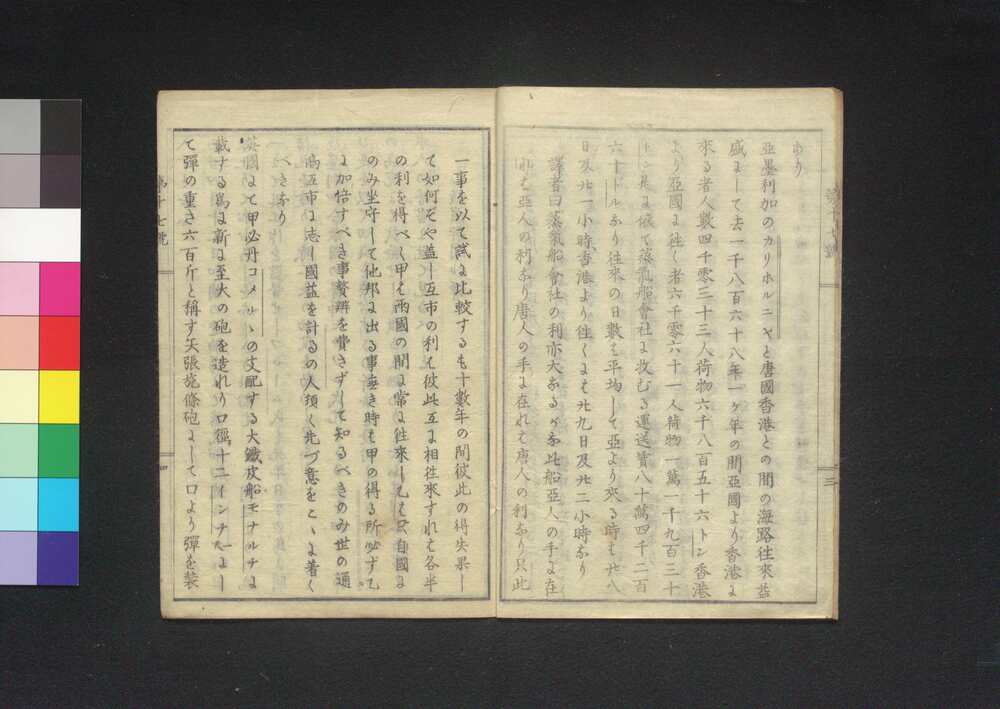 あり
亞墨利加のカリホルニヤと唐國香港との間の海路往來益
盛にして去一千八百六十八年一ケ年の間亞國より香港に
來る者人數四千零三十三人荷物六千八百五十六トン香港
より亞國に往く者六千零六十一人荷物一萬一千九百三十
トン是に依て蒸氣船會社に收むる運送賃八十萬四千二百
六十ドルなり往來の日數は平均して亞より來る時は廿八
日及廿一小時香港より往くには廿九日及廿二小時なり
譯者曰蒸氣船會社の利亦大なるかな此船亞人の手に在
れは亞人の利なり唐人の手に在れは唐人の利なり只此
一事を以て試に比較するも十數年の間彼此の得失果し
て如何そや蓋し互市の利は彼此互に相往來すれは各半
の利を得べく甲は兩國の間に常に往來し乙は只自國に
のみ坐守して他邦に出る事無き時は甲の得る所必ずて
に加倍すべき事贅辨を費さずして知るべきのみ世の通
商互市に志し國益を計るの人須く先づ意をこゝに着く
べきなり
英國にて甲必丹コメルヽの支配する大鐵皮船モナルチに
載する爲に新に至大の砲を造れり口徑十二インチにし
て彈の重さ六百斤と稱す矢張施條砲にして口より彈を裝
第十七號
四
第十七號
三